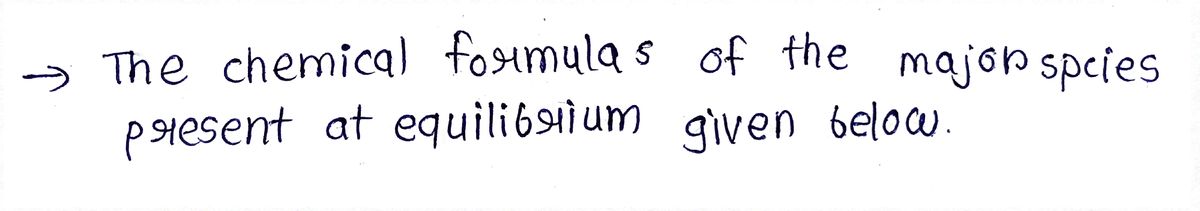 → The chemical formulas of the major spcies
present at equilibrium given below.